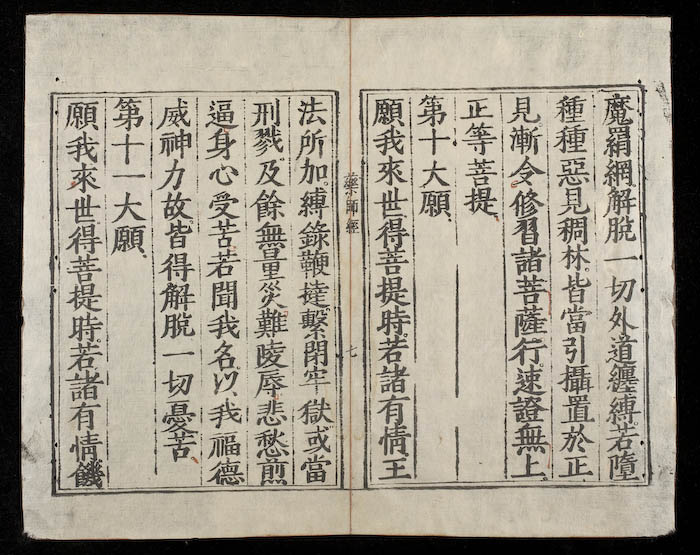 魔羂網解脫一切外道纏縛若墮
種種惡見稠林皆當引攝置於正
見漸令修習諸菩薩行速證無上
正等菩提
第十大願
願我來世得菩提時若諸有情王
藥師經
七
法所加縛錄鞭撻繫閉牢獄或當
刑戮及餘無量災難陵辱悲愁煎
逼身心受苦若聞我名以我福德
威神力故皆得解脫一切憂苦
第十一大願
願我來世得菩提時若諸有情饑